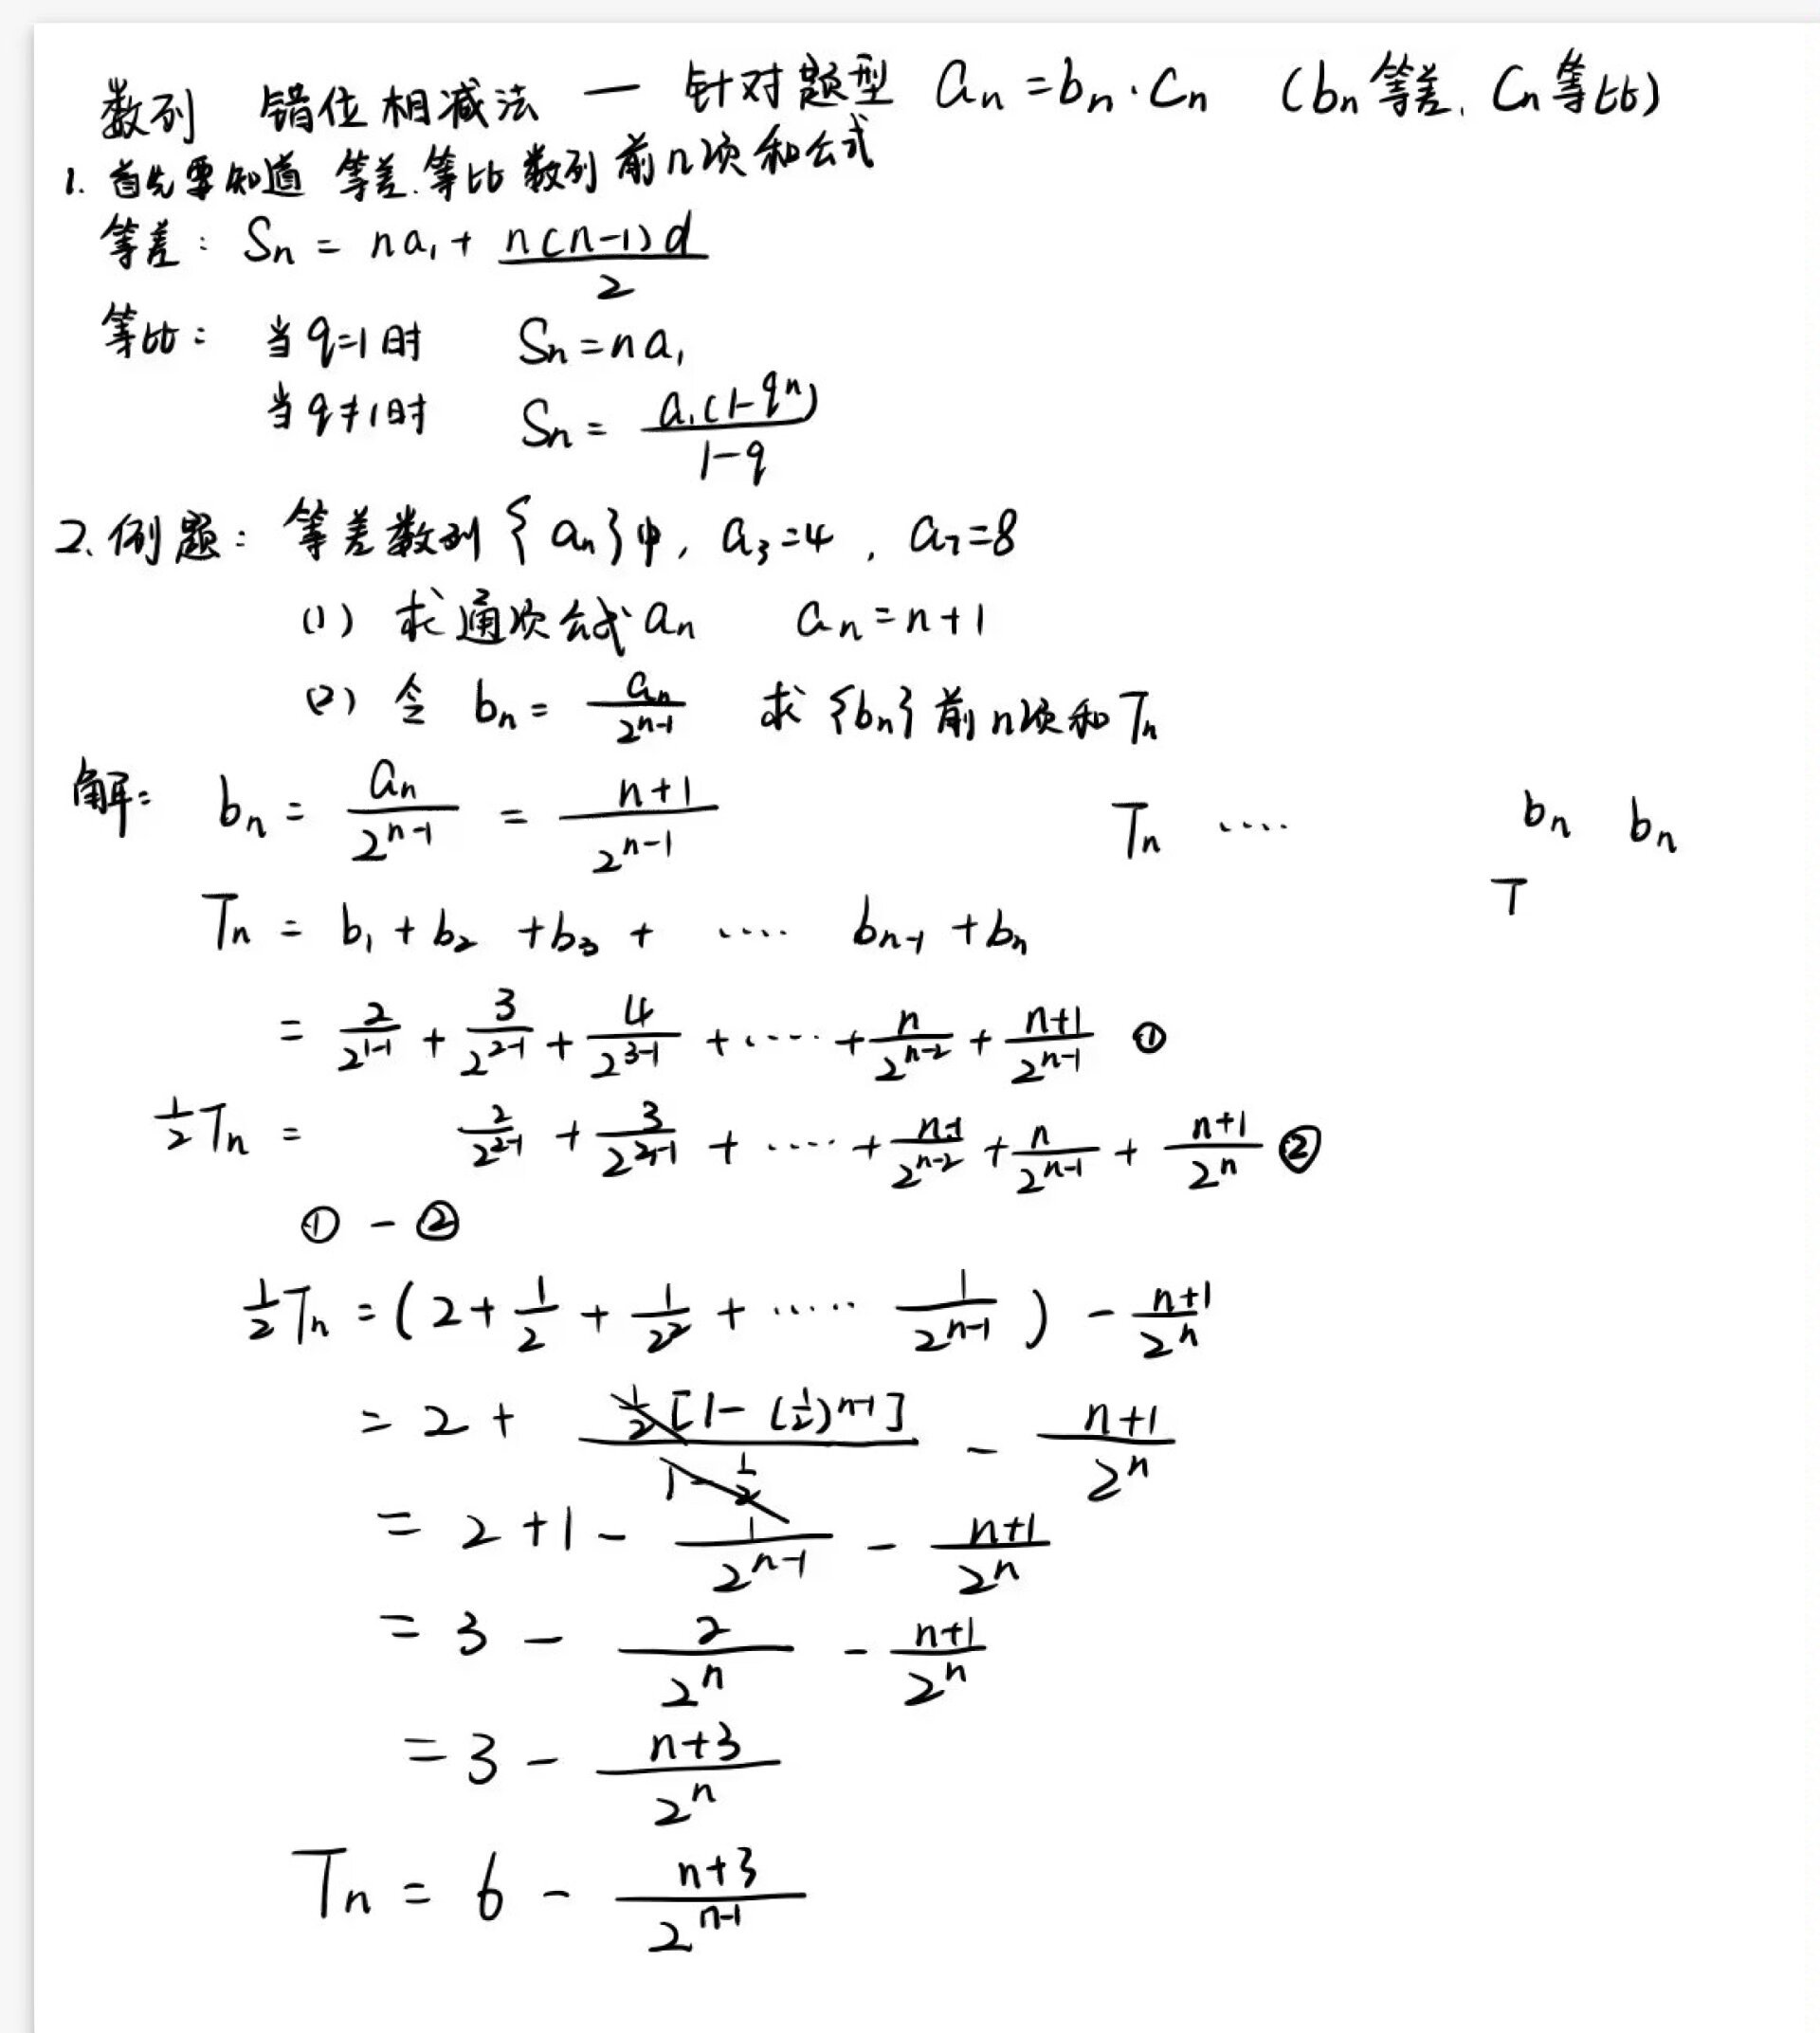 数列 错位相减法 — 针对题型 aₙ=bₙ·Cₙ (bₙ等差, Cₙ等比)
1. 首先要知道 等差.等比数列前n项和公式
等差: Sₙ = na₁ + n(n-1)d/2
等比: 当q=1时 Sₙ=na₁
当q≠1时 Sₙ= a₁(1-qⁿ)/(1-q)
2.例题: 等差数列{aₙ}中, a₃=4, a₇=8
(1) 求通项公式aₙ aₙ=n+1
(2) 令 bₙ= aₙ/2ⁿ⁻¹ 求{bₙ}前n项和Tₙ
解: bₙ = aₙ/2ⁿ⁻¹ = (n+1)/2ⁿ⁻¹ Tₙ .... bₙ bₙ
T
Tₙ = b₁ + b₂ + b₃ + .... bₙ₋₁ + bₙ
= 2/2¹⁻¹ + 3/2²⁻¹ + 4/2³⁻¹ + ..... + n/2ⁿ⁻² + (n+1)/2ⁿ⁻¹ ①
½Tₙ = 2/2²⁻¹ + 3/2³⁻¹ + .... + (n-1)/2ⁿ⁻² + n/2ⁿ⁻¹ + (n+1)/2ⁿ ②
① - ②
½Tₙ = (2 + 1/2 + 1/2² + ..... 1/2ⁿ⁻¹) - (n+1)/2ⁿ
= 2 + ½[1-(½)ⁿ⁻¹]/(1-½) - (n+1)/2ⁿ
= 2+1 - 1/2ⁿ⁻¹ - (n+1)/2ⁿ
= 3 - 2/2ⁿ - (n+1)/2ⁿ
= 3 - (n+3)/2ⁿ
Tₙ = 6 - (n+3)/2ⁿ⁻¹